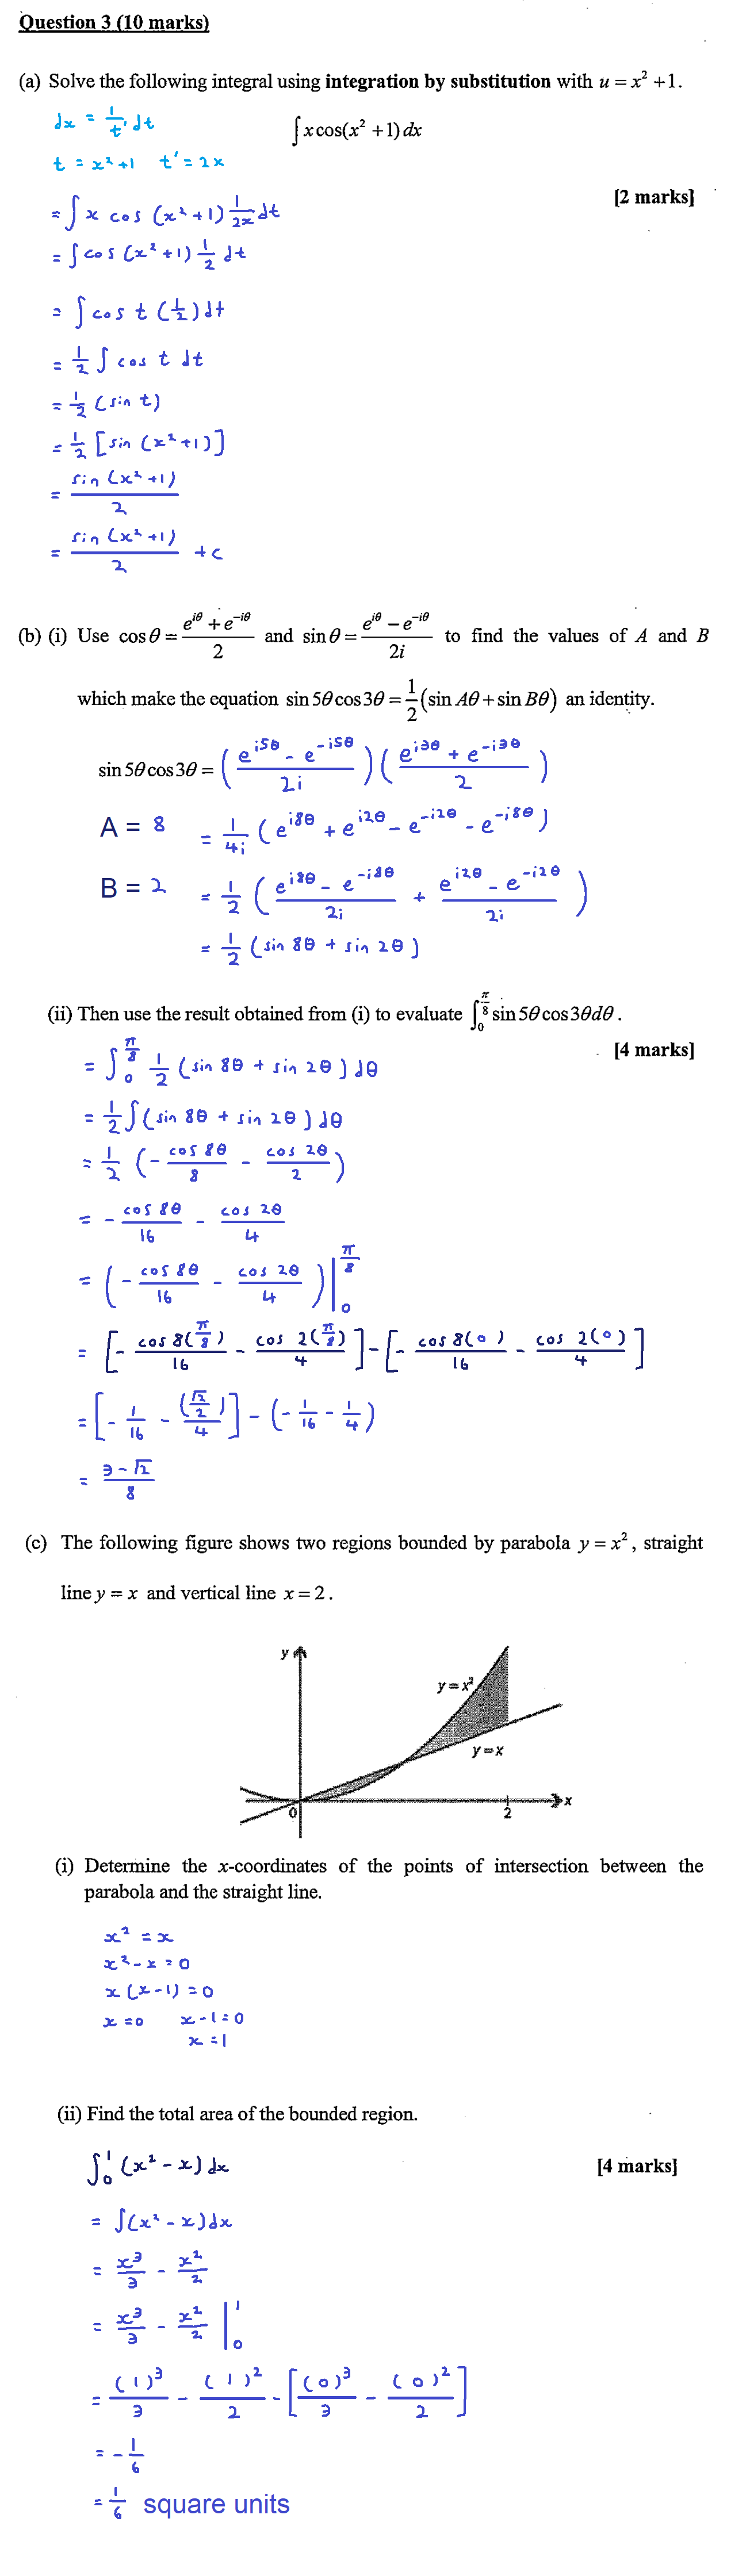 Question 3 (10 marks)
(a) Solve the following integral using integration by substitution with u = x² + 1.
dx = 1/t' dt
∫ x cos(x² + 1) dx
t = x² + 1   t' = 2x
[2 marks]
= ∫ x cos (x² + 1) 1/2x dt
= ∫ cos (x² + 1) 1/2 dt
= ∫ cos t (1/2) dt
= 1/2 ∫ cos t dt
= 1/2 (sin t)
= 1/2 [sin (x² + 1)]
= sin (x² + 1)/2
= sin (x² + 1)/2 + c
(b) (i) Use cos θ = (e^{iθ} + e^{-iθ})/2 and sin θ = (e^{iθ} − e^{-iθ})/2i to find the values of A and B
which make the equation sin 5θ cos 3θ = 1/2 (sin Aθ + sin Bθ) an identity.
sin 5θ cos 3θ = ((e^{i5θ} − e^{-i5θ})/2i) ((e^{i3θ} + e^{-i3θ})/2)
A = 8   = 1/4i (e^{i8θ} + e^{i2θ} − e^{-i2θ} − e^{-i8θ})
B = 2   = 1/2 ((e^{i8θ} − e^{-i8θ})/2i + (e^{i2θ} − e^{-i2θ})/2i)
= 1/2 (sin 8θ + sin 2θ)
(ii) Then use the result obtained from (i) to evaluate ∫₀^{π/8} sin 5θ cos 3θ dθ.
[4 marks]
= ∫₀^{π/8} 1/2 (sin 8θ + sin 2θ) dθ
= 1/2 ∫ (sin 8θ + sin 2θ) dθ
= 1/2 (− cos 8θ/8 − cos 2θ/2)
= − cos 8θ/16 − cos 2θ/4
= (− cos 8θ/16 − cos 2θ/4) |₀^{π/8}
= [− cos 8(π/8)/16 − cos 2(π/8)/4] − [− cos 8(0)/16 − cos 2(0)/4]
= [− 1/16 − (√2/2)/4] − (− 1/16 − 1/4)
= (3 − √2)/8
(c) The following figure shows two regions bounded by parabola y = x², straight
line y = x and vertical line x = 2.
y
y = x²
y = x
0
2
x
(i) Determine the x-coordinates of the points of intersection between the
parabola and the straight line.
x² = x
x² − x = 0
x (x − 1) = 0
x = 0   x − 1 = 0
x = 1
(ii) Find the total area of the bounded region.
∫₀¹ (x² − x) dx
[4 marks]
= ∫ (x² − x) dx
= x³/3 − x²/2
= x³/3 − x²/2 |₀¹
= (1)³/3 − (1)²/2 − [(0)³/3 − (0)²/2]
= − 1/6
= 1/6 square units